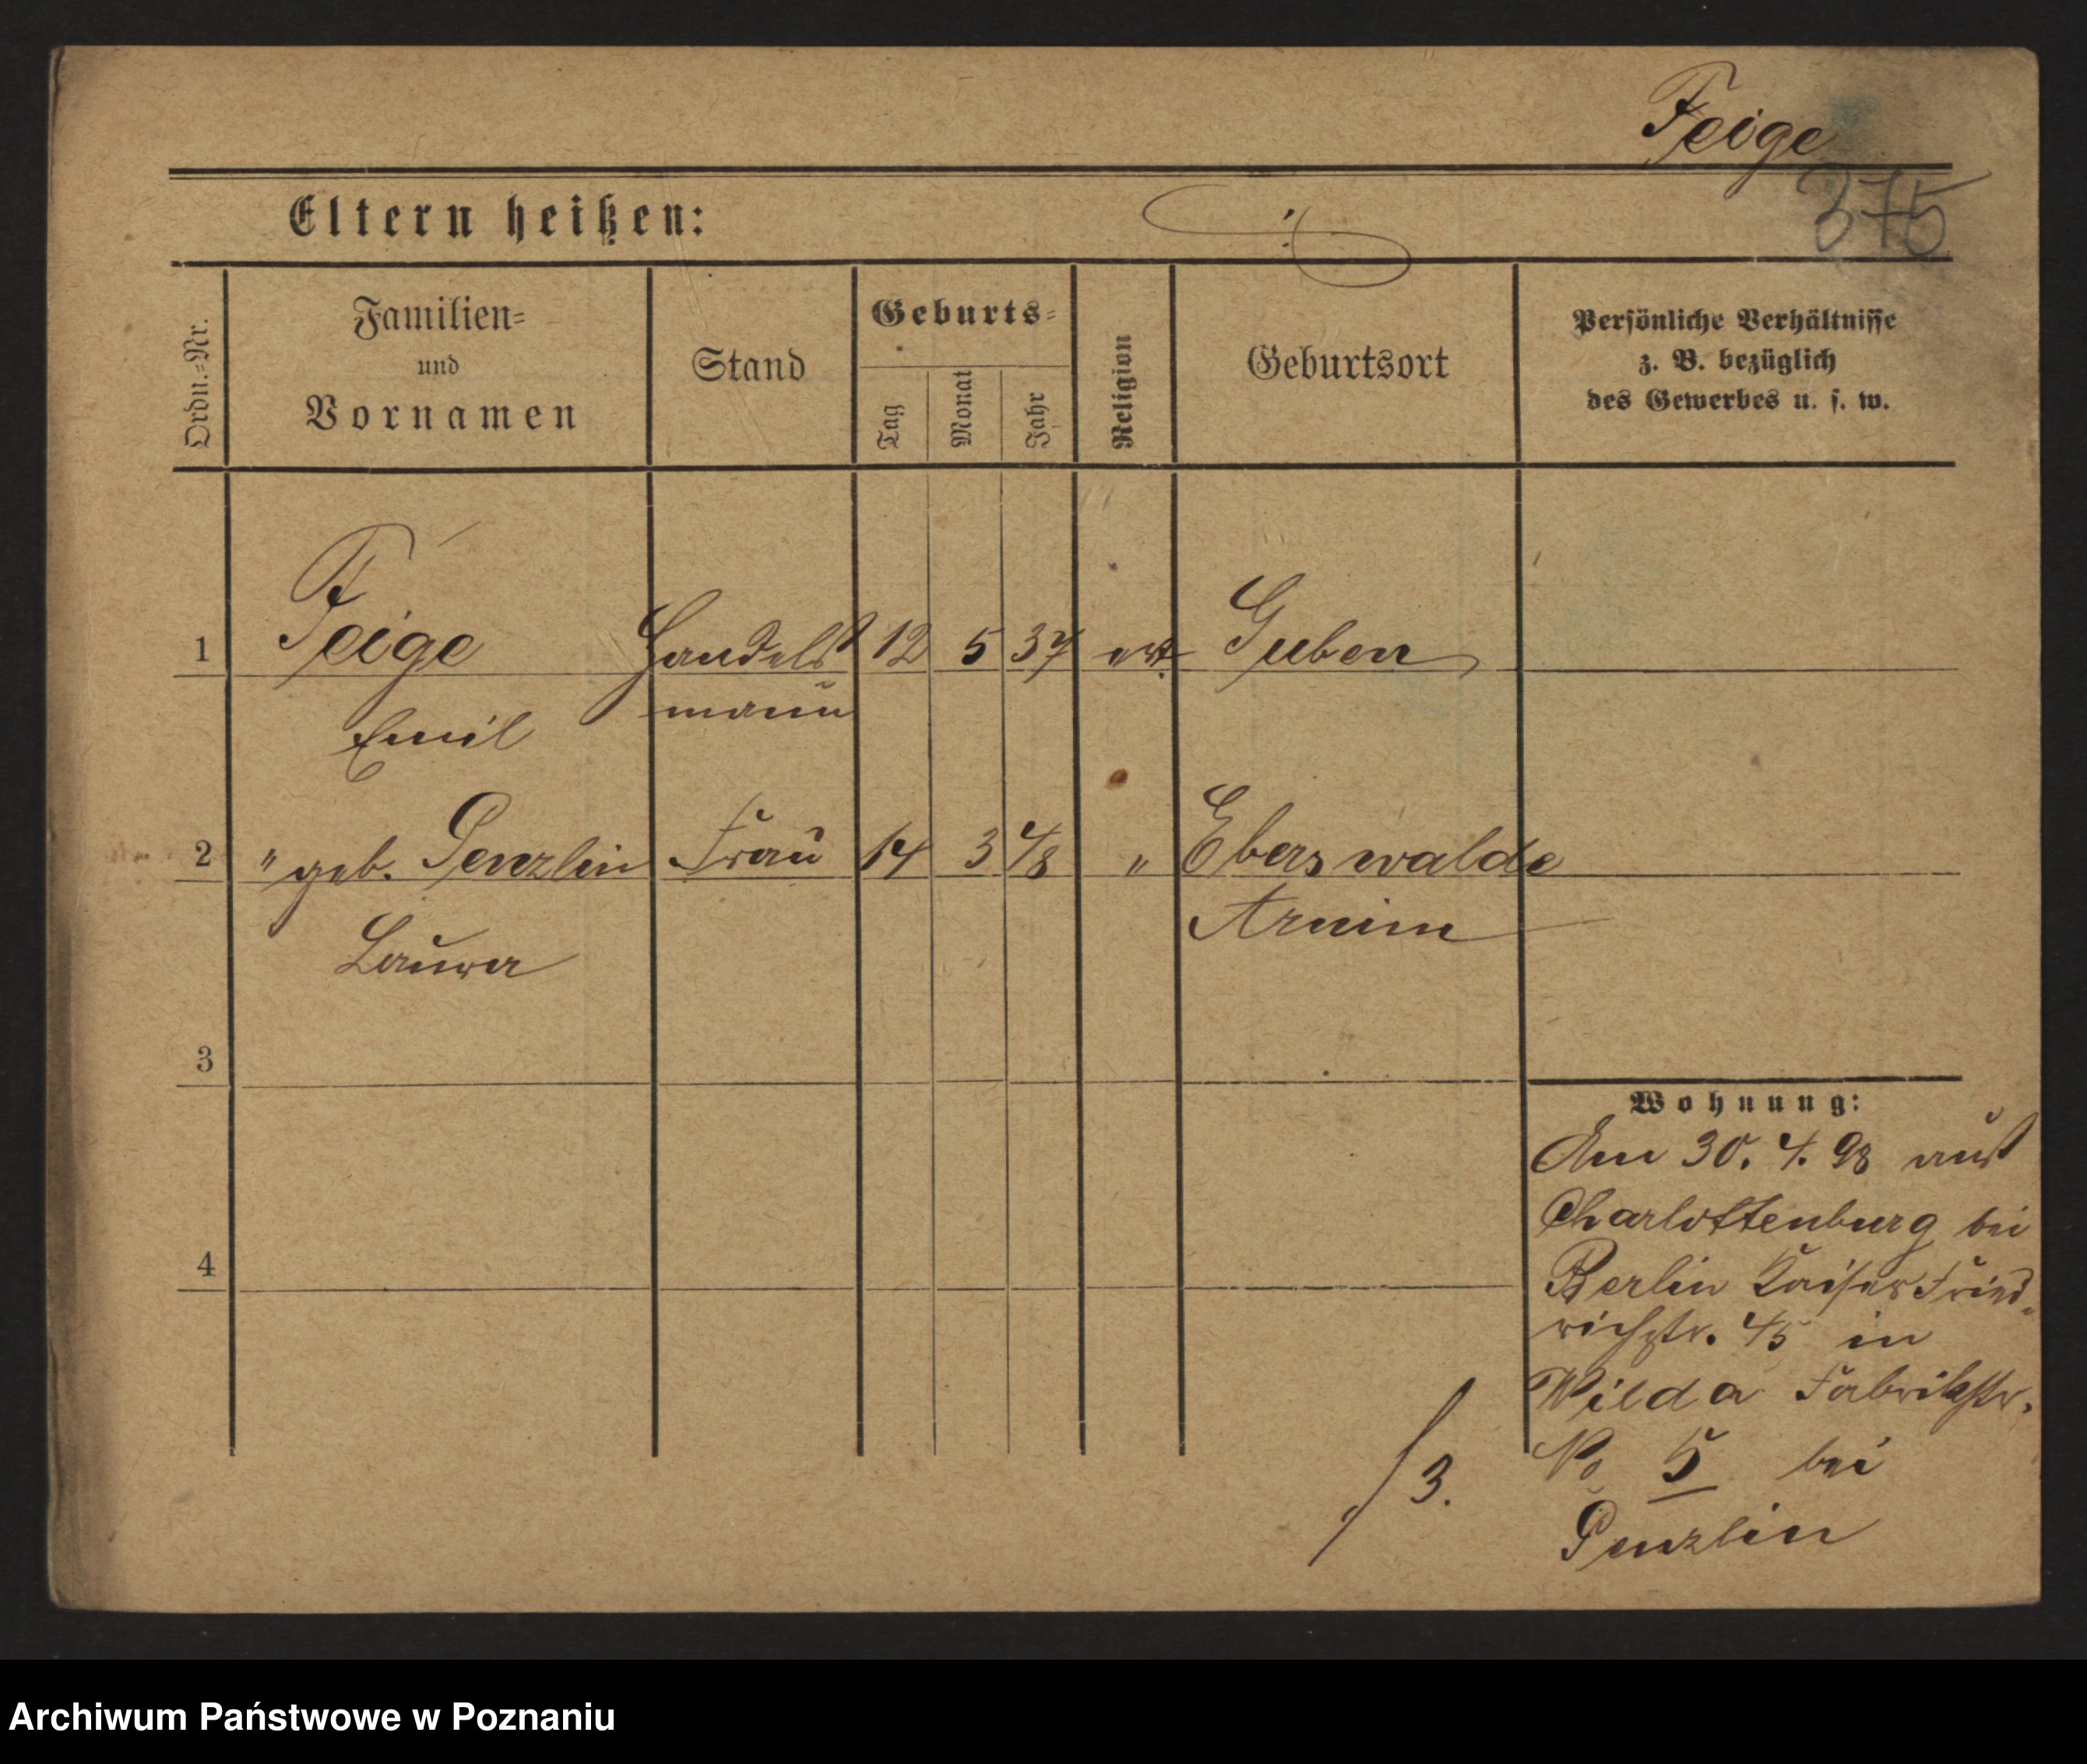 Feige
375
Eltern heißen:
Ordn.-Nr.
Familien-
und
Vornamen
Stand
Geburts-
Tag
Monat
Jahr
Religion
Geburtsort
Persönliche Verhältnisse
z. B. bezüglich
des Gewerbes u. s. w.
1 Feige Handels 12 5 37 Guben
mann
Emil
2 " geb. Penzlin Frau 14 3 48 " Eberswalde
Arnim
Laura
3
Wohnung:
Am 30. 4. 98 aus
Charlottenburg bei
Berlin Kaiser Fried-
richstr. 45 in
4
Wilda Fabrikstr.
No 5 bei
Penzlin
3.
Archiwum Państwowe w Poznaniu